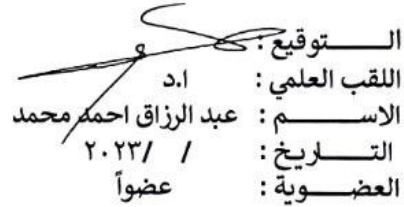 التوقيع :
اللقب العلمي : ا.د
الاسم : عبد الرزاق احمد محمد
التاريخ : / /٢٠٢٣
العضوية : عضواً